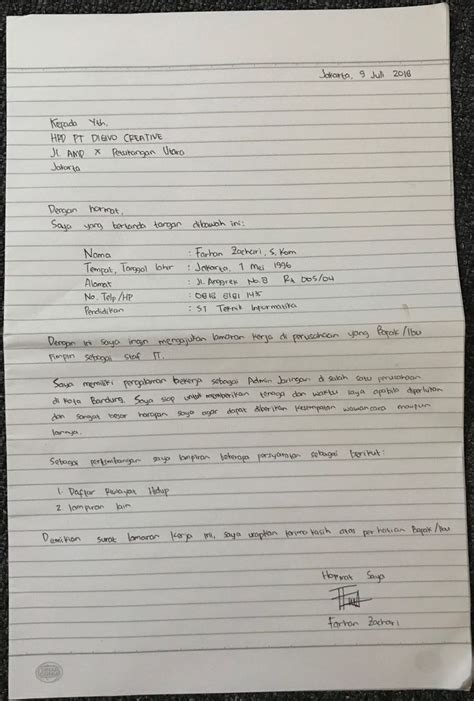 Jakarta, 9 Juli 2018
Kepada Yth.
HRD PT DIGIVO CREATIVE
Jl. AMD X Pesutangan Utara
Jakarta
Dengan hormat,
Saya yang bertanda tangan dibawah ini:
Nama : Farhan Zachari, S. Kom
Tempat, Tanggal lahir : Jakarta, 7 Mei 1996
Alamat : Jl. Anggrek No. 8 Rt 005/04
No. Telp/HP : 0818 8181
Pendidikan : S1 Teknik Informatika
Dengan ini saya ingin mengajukan lamaran kerja di perusahaan yang Bapak/Ibu
pimpin sebagai staf IT.
Saya memiliki pengalaman bekerja sebagai Admin Jaringan di salah satu perusahaan
di Kota Bandung. Saya siap untuk memberikan tenaga dan waktu saya apabila diperlukan
dan sangat besar harapan saya agar dapat diberikan kesempatan wawancara maupun
lainnya.
Sebagai pertimbangan saya lampirkan beberapa persyaratan sebagai berikut:
1. Daftar Riwayat Hidup
2. lampiran lain
Demikian surat lamaran kerja ini, saya ucapkan terima kasih atas perhatian Bapak/Ibu
Hormat Saya
Farhan Zachari